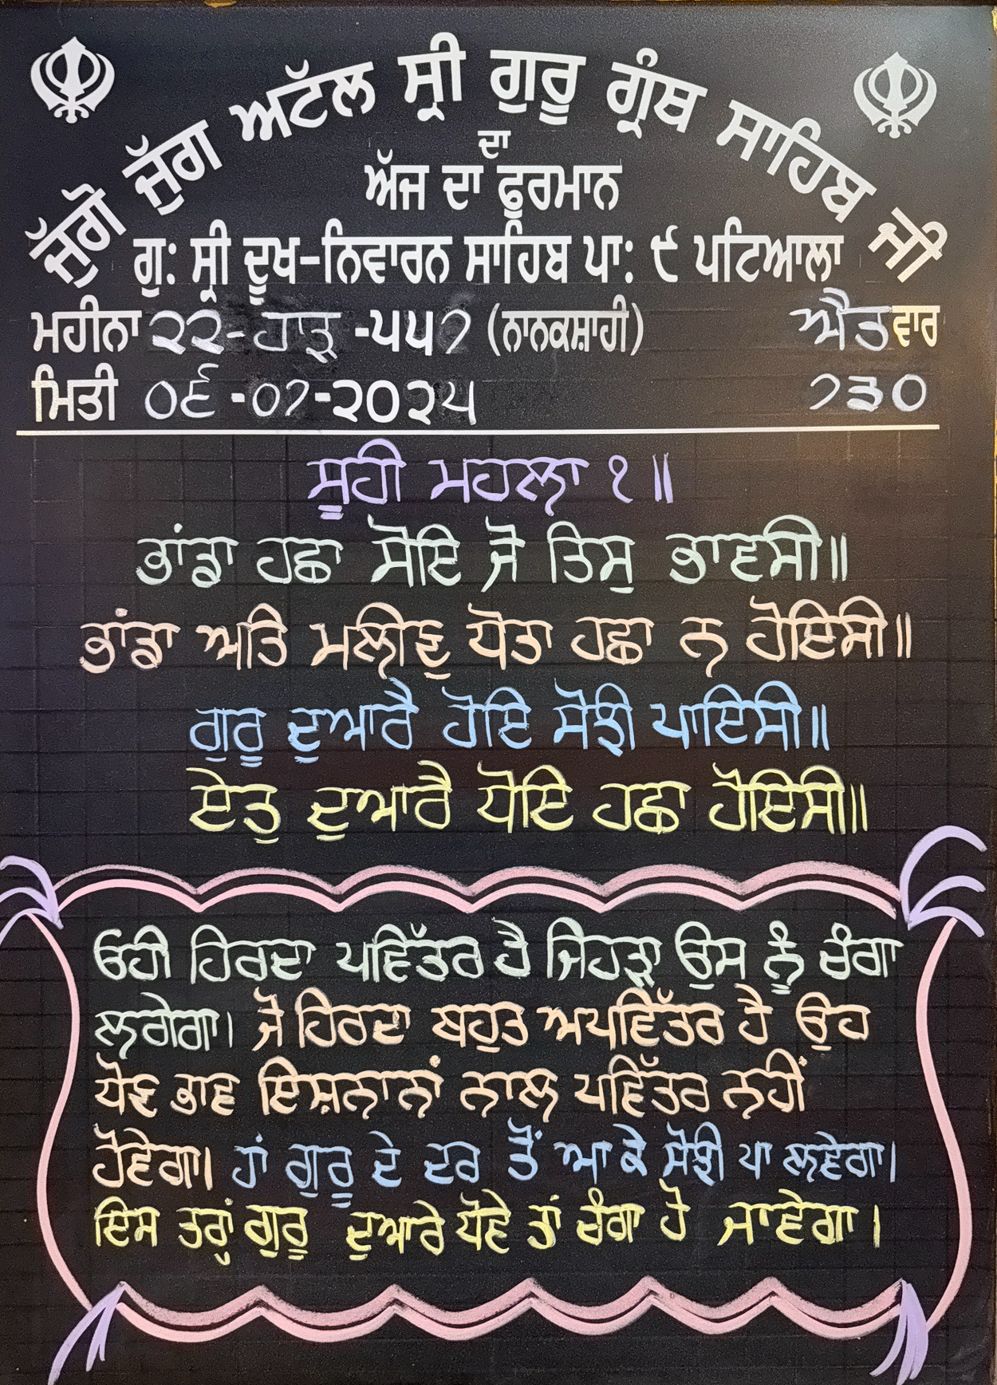 ਜੁੱਗੋ ਜੁੱਗ ਅਟੱਲ ਸ੍ਰੀ ਗੁਰੂ ਗ੍ਰੰਥ ਸਾਹਿਬ ਜੀ
ਦਾ
ਅੱਜ ਦਾ ਫੁਰਮਾਨ
ਗੁ: ਸ੍ਰੀ ਦੂਖ-ਨਿਵਾਰਨ ਸਾਹਿਬ ਪਾ: ੯ ਪਟਿਆਲਾ
ਮਹੀਨਾ ੨੨-ਹਾੜ -੫੫੭ (ਨਾਨਕਸ਼ਾਹੀ) ਐਤਵਾਰ
ਮਿਤੀ ੦੬-੦੭-੨੦੨੫ ੭੩੦
ਸੂਹੀ ਮਹਲਾ ੧॥
ਭਾਂਡਾ ਹਛਾ ਸੋਇ ਜੋ ਤਿਸੁ ਭਾਵਸੀ॥
ਭਾਂਡਾ ਅਤਿ ਮਲੀਣੁ ਧੋਤਾ ਹਛਾ ਨ ਹੋਇਸੀ॥
ਗੁਰੂ ਦੁਆਰੈ ਹੋਇ ਸੋਝੀ ਪਾਇਸੀ॥
ਏਤੁ ਦੁਆਰੈ ਧੋਇ ਹਛਾ ਹੋਇਸੀ॥
ਓਹੀ ਹਿਰਦਾ ਪਵਿੱਤਰ ਹੈ ਜਿਹੜਾ ਉਸ ਨੂੰ ਚੰਗਾ
ਲਗੇਗਾ। ਜੋ ਹਿਰਦਾ ਬਹੁਤ ਅਪਵਿੱਤਰ ਹੈ ਉਹ
ਧੋਣ ਭਾਵ ਇਸ਼ਨਾਨਾਂ ਨਾਲ ਪਵਿੱਤਰ ਨਹੀਂ
ਹੋਵੇਗਾ। ਹਾਂ ਗੁਰੂ ਦੇ ਦਰ ਤੋਂ ਆ ਕੇ ਸੋਝੀ ਪਾ ਲਵੇਗਾ।
ਇਸ ਤਰ੍ਹਾਂ ਗੁਰੂ ਦੁਆਰੇ ਧੋਵੇ ਤਾਂ ਚੰਗਾ ਹੋ ਜਾਵੇਗਾ।